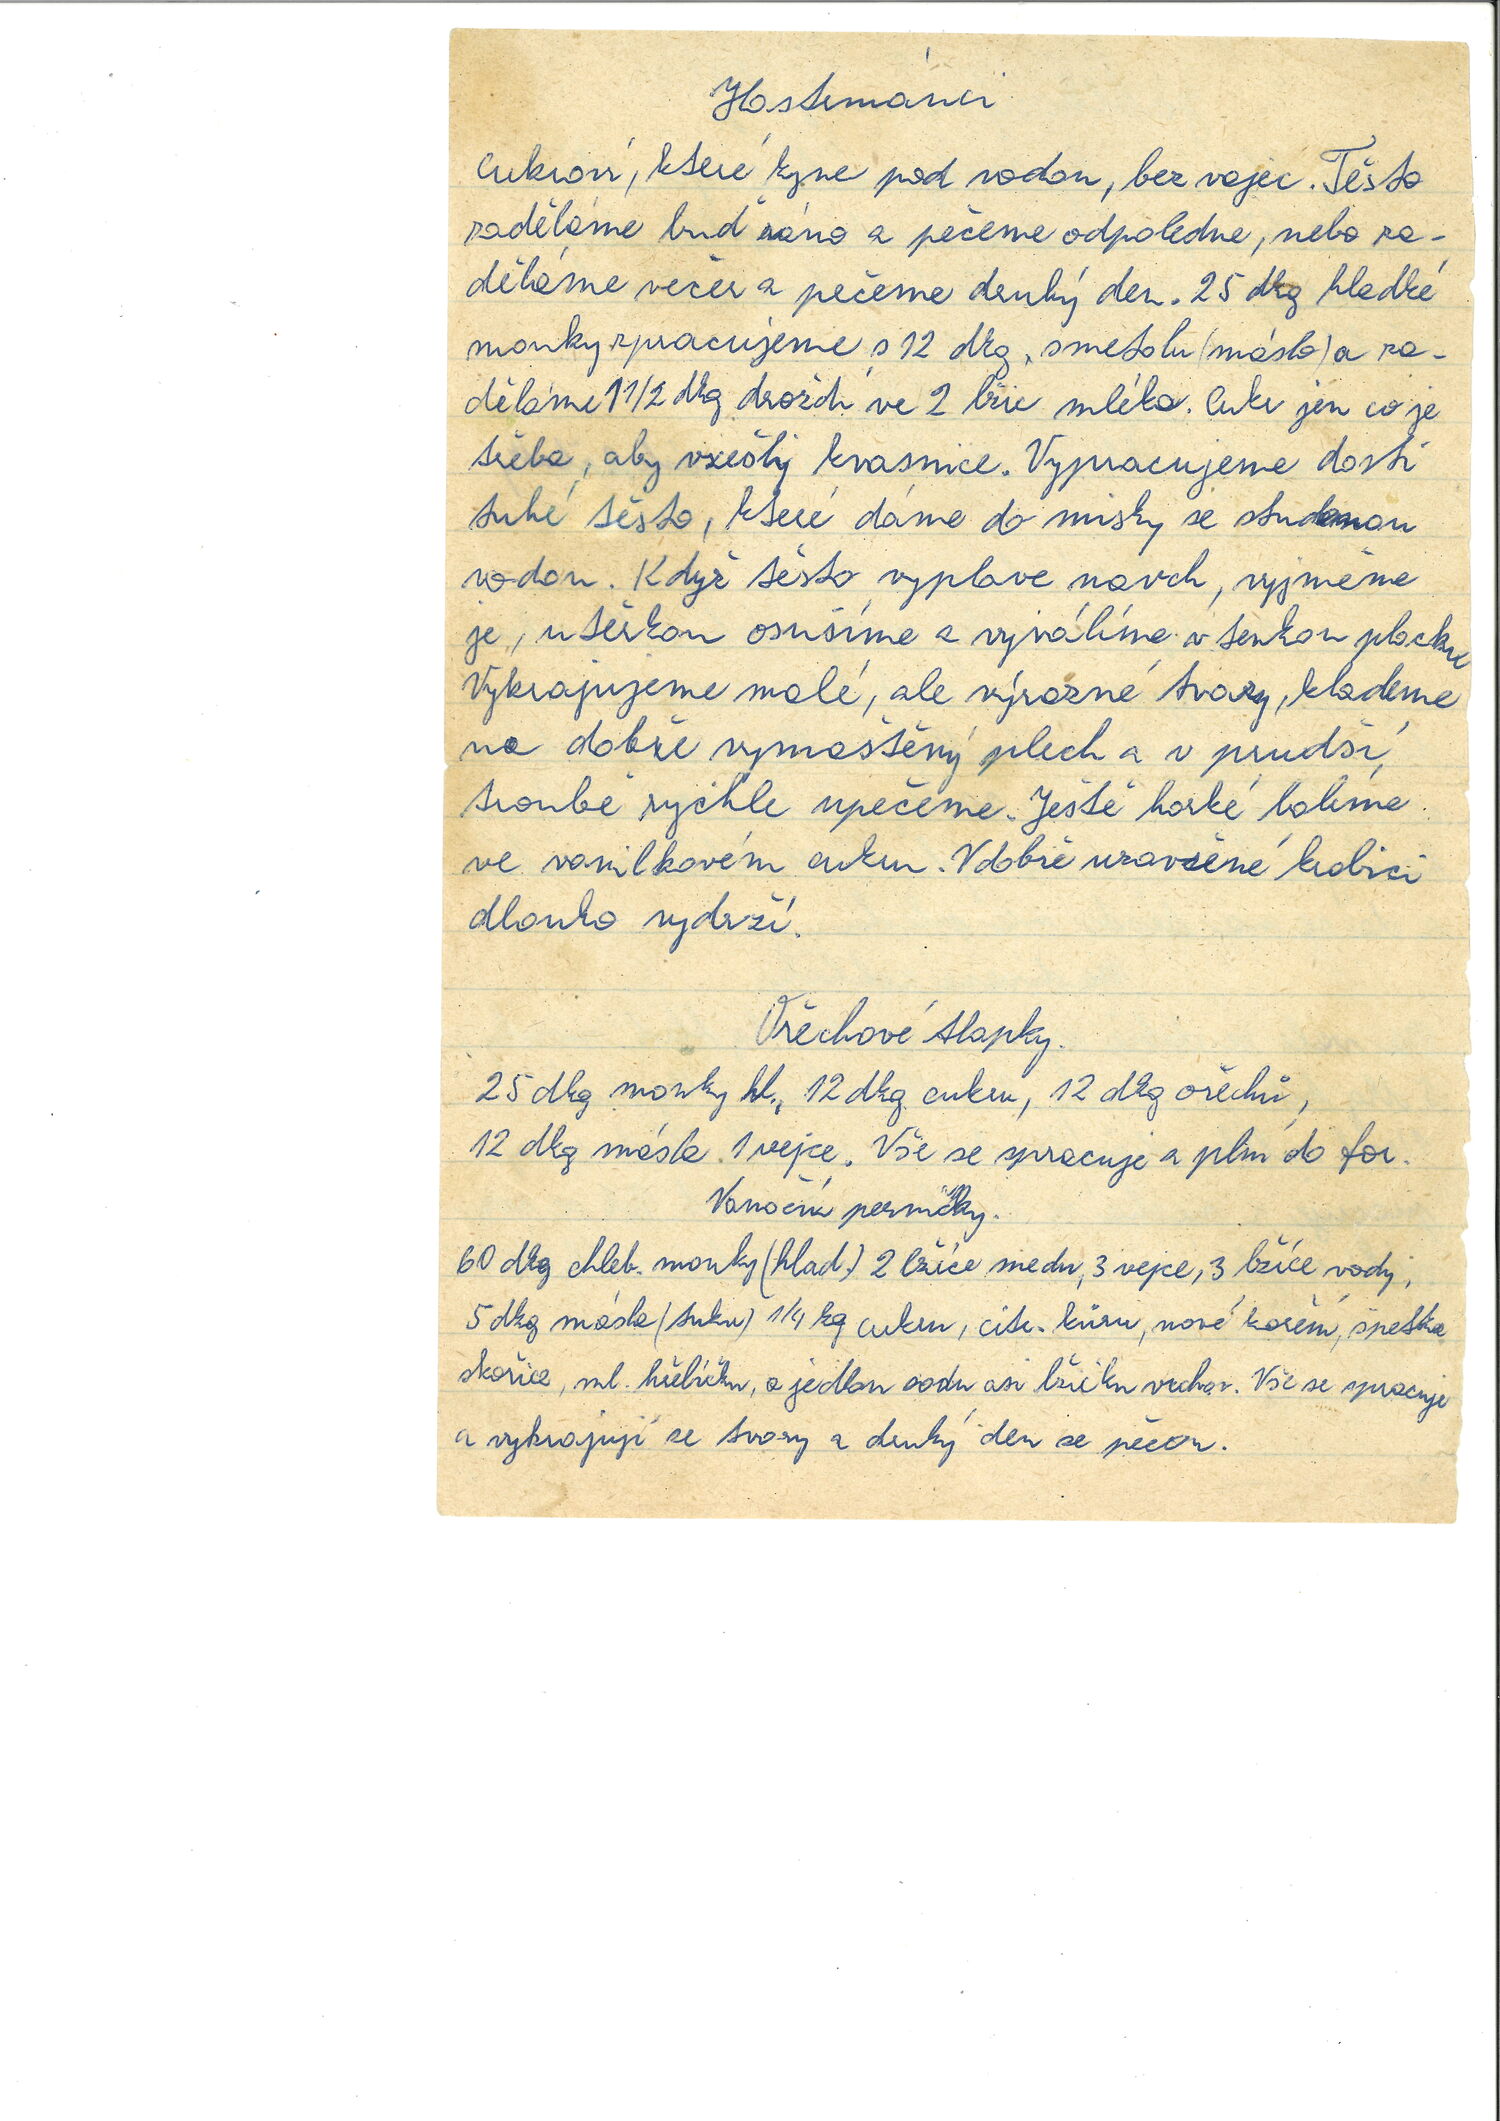 Hastrmánci
Cukroví, které kyne pod vodou, bez vajec. Těsto
zaděláme buď ráno a pečeme odpoledne, nebo za-
děláme večer a pečeme druhý den. 25 dkg hladké
mouky zpracujeme s 12 dkg, smetolu (másla) a za-
děláme 1 1/2 dkg droždí ve 2 lžic mléka. Cukr jen co je
třeba, aby vzešly kvasnice. Vypracujeme dosti
tuhé těsto, které dáme do misky se studenou
vodou. Když těsto vyplave navch, vyjmeme
je, utěrkou osušíme a vyválíme v tenkou placku
Vykrajujeme malé, ale výrazné tvary, klademe
na dobře vymaštěný plech a v prudší
troubě rychle upečeme. Ještě horké balíme
ve vanilkovém cukru. V dobře uzavřené krabici
dlouho vydrží.
Ořechové tlapky.
25 dkg mouky hl., 12 dkg cukru, 12 dkg ořechů,
12 dkg másla 1 vejce. Vše se zpracuje a plní do for.
Vánoční perníčky.
60 dkg chleb. mouky (hlad.) 2 lžíce medu, 3 vejce, 3 lžíce vody,
5 dkg másla (tuku) 1/4 kg cukru, citr. kůru, nové koření, špetka
skořice, ml. hřebíčku, a jedlou sodu asi lžičku vrchov. Vše se zpracuje
a vykrajují se tvary a druhý den se pečou.